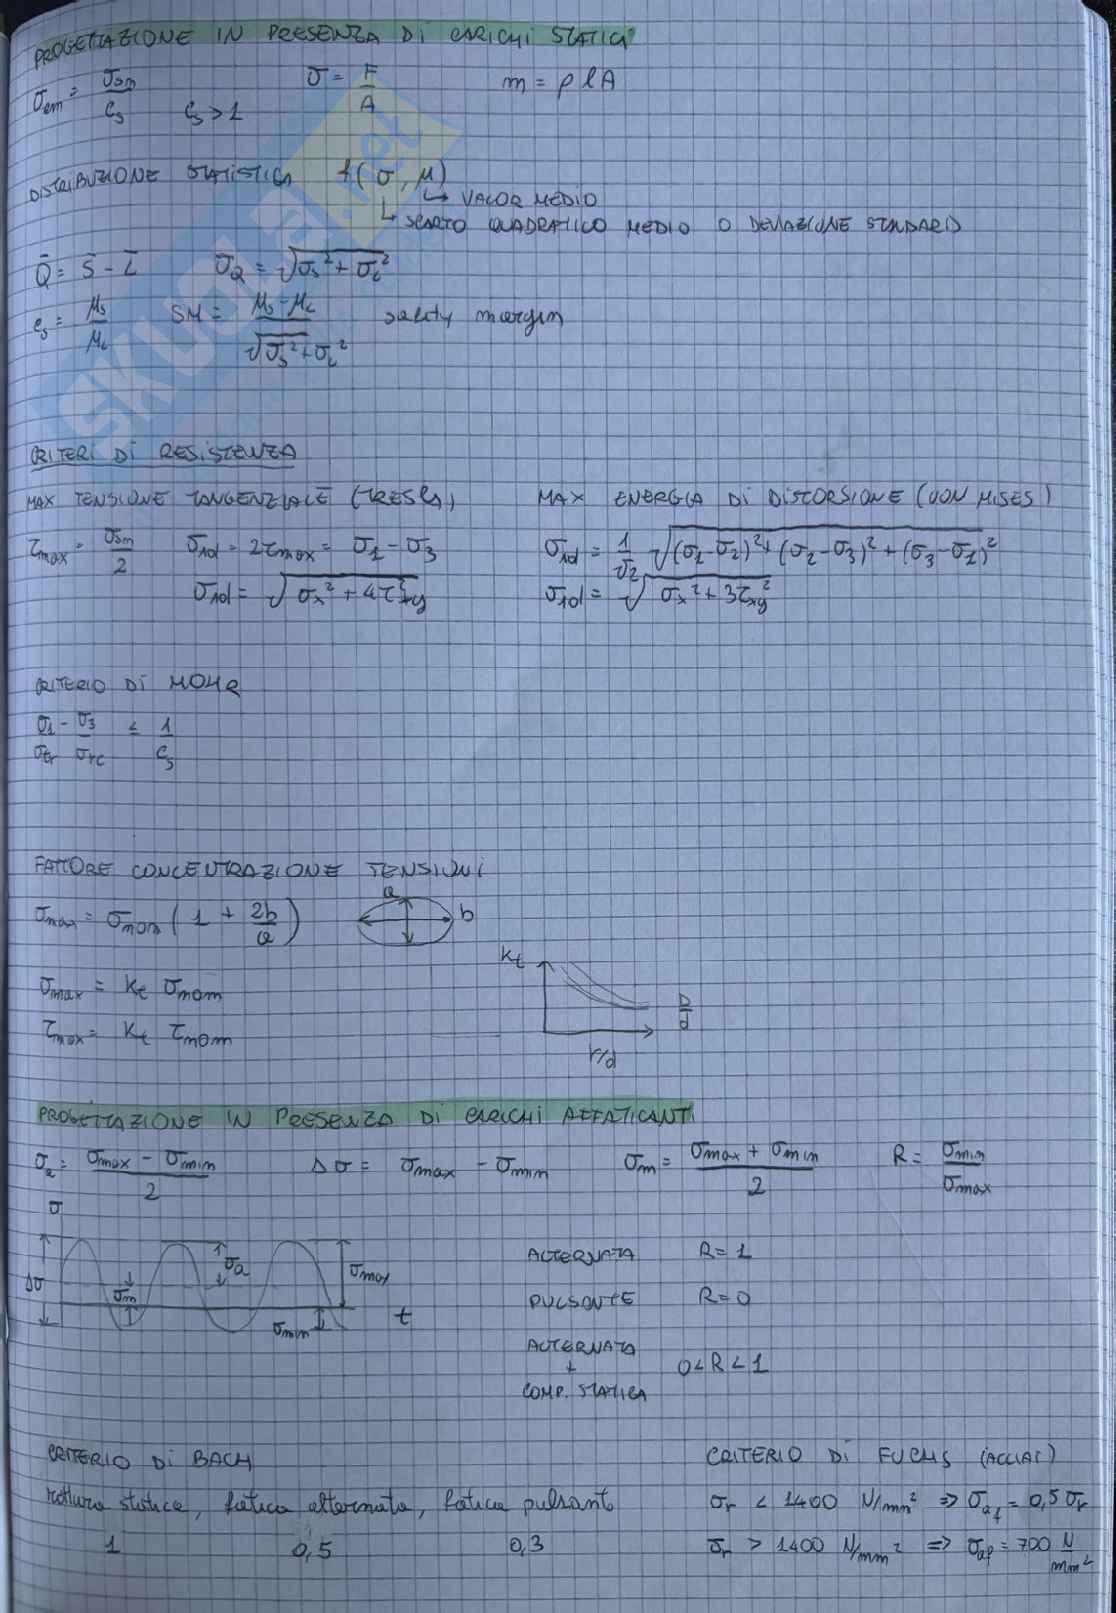 PROGETTAZIONE IN PRESENZA Di CARICHI STATICI
σem = σsn / Cs    Cs > 1    σ = F / A    m = ρ l A
DISTRIBUZIONE STATISTICA f(σ, μ)
↳ VALOR MEDIO
↳ SCARTO QUADRATICO MEDIO O DEVIAZIONE STANDARD
Q̄ = S̄ - L̄    σQ = √(σs² + σL²)
Cs = μs / μL    SM = (μs - μL) / √(σs² + σL²)    safety margin
CRITERI Di RESISTENZA
MAX TENSIONE TANGENZIALE (TRESCA)    MAX ENERGIA Di DiSTORSIONE (VON MISES)
τmax = σsn / 2    σid = 2τmax = σ1 - σ3    σid = 1/√2 √((σ1-σ2)² + (σ2-σ3)² + (σ3-σ1)²)
σid = √(σx² + 4τ²xy)    σid = √(σx² + 3τxy²)
CRITERIO Di MOHR
σ1/σtr - σ3/σrc ≤ 1/Cs
FATTORE CONCENTRAZIONE TENSIONI
σmax = σnom (1 + 2b/a)    a    b
σmax = Kt σnom    Kt
τmax = Kt τnom    D/d
r/d
PROGETTAZIONE IN PRESENZA Di CARICHI AFFATICANTI
σa = (σmax - σmin) / 2    Δσ = σmax - σmin    σm = (σmax + σmin) / 2    R = σmin / σmax
σ
Δσ    σm    σa    σmax    σmin    t
ALTERNATA    R = 1
PULSANTE    R = 0
ALTERNATA + COMP. STATICA    0 < R < 1
CRITERIO Di BACH    CRITERIO Di FUCHS (ACCIAI)
rottura statica, fatica alternata, fatica pulsante    σr < 1400 N/mm² => σaf = 0,5 σr
1    0,5    0,3    σr > 1400 N/mm² => σaf = 700 N/mm²
SKUOLA.net